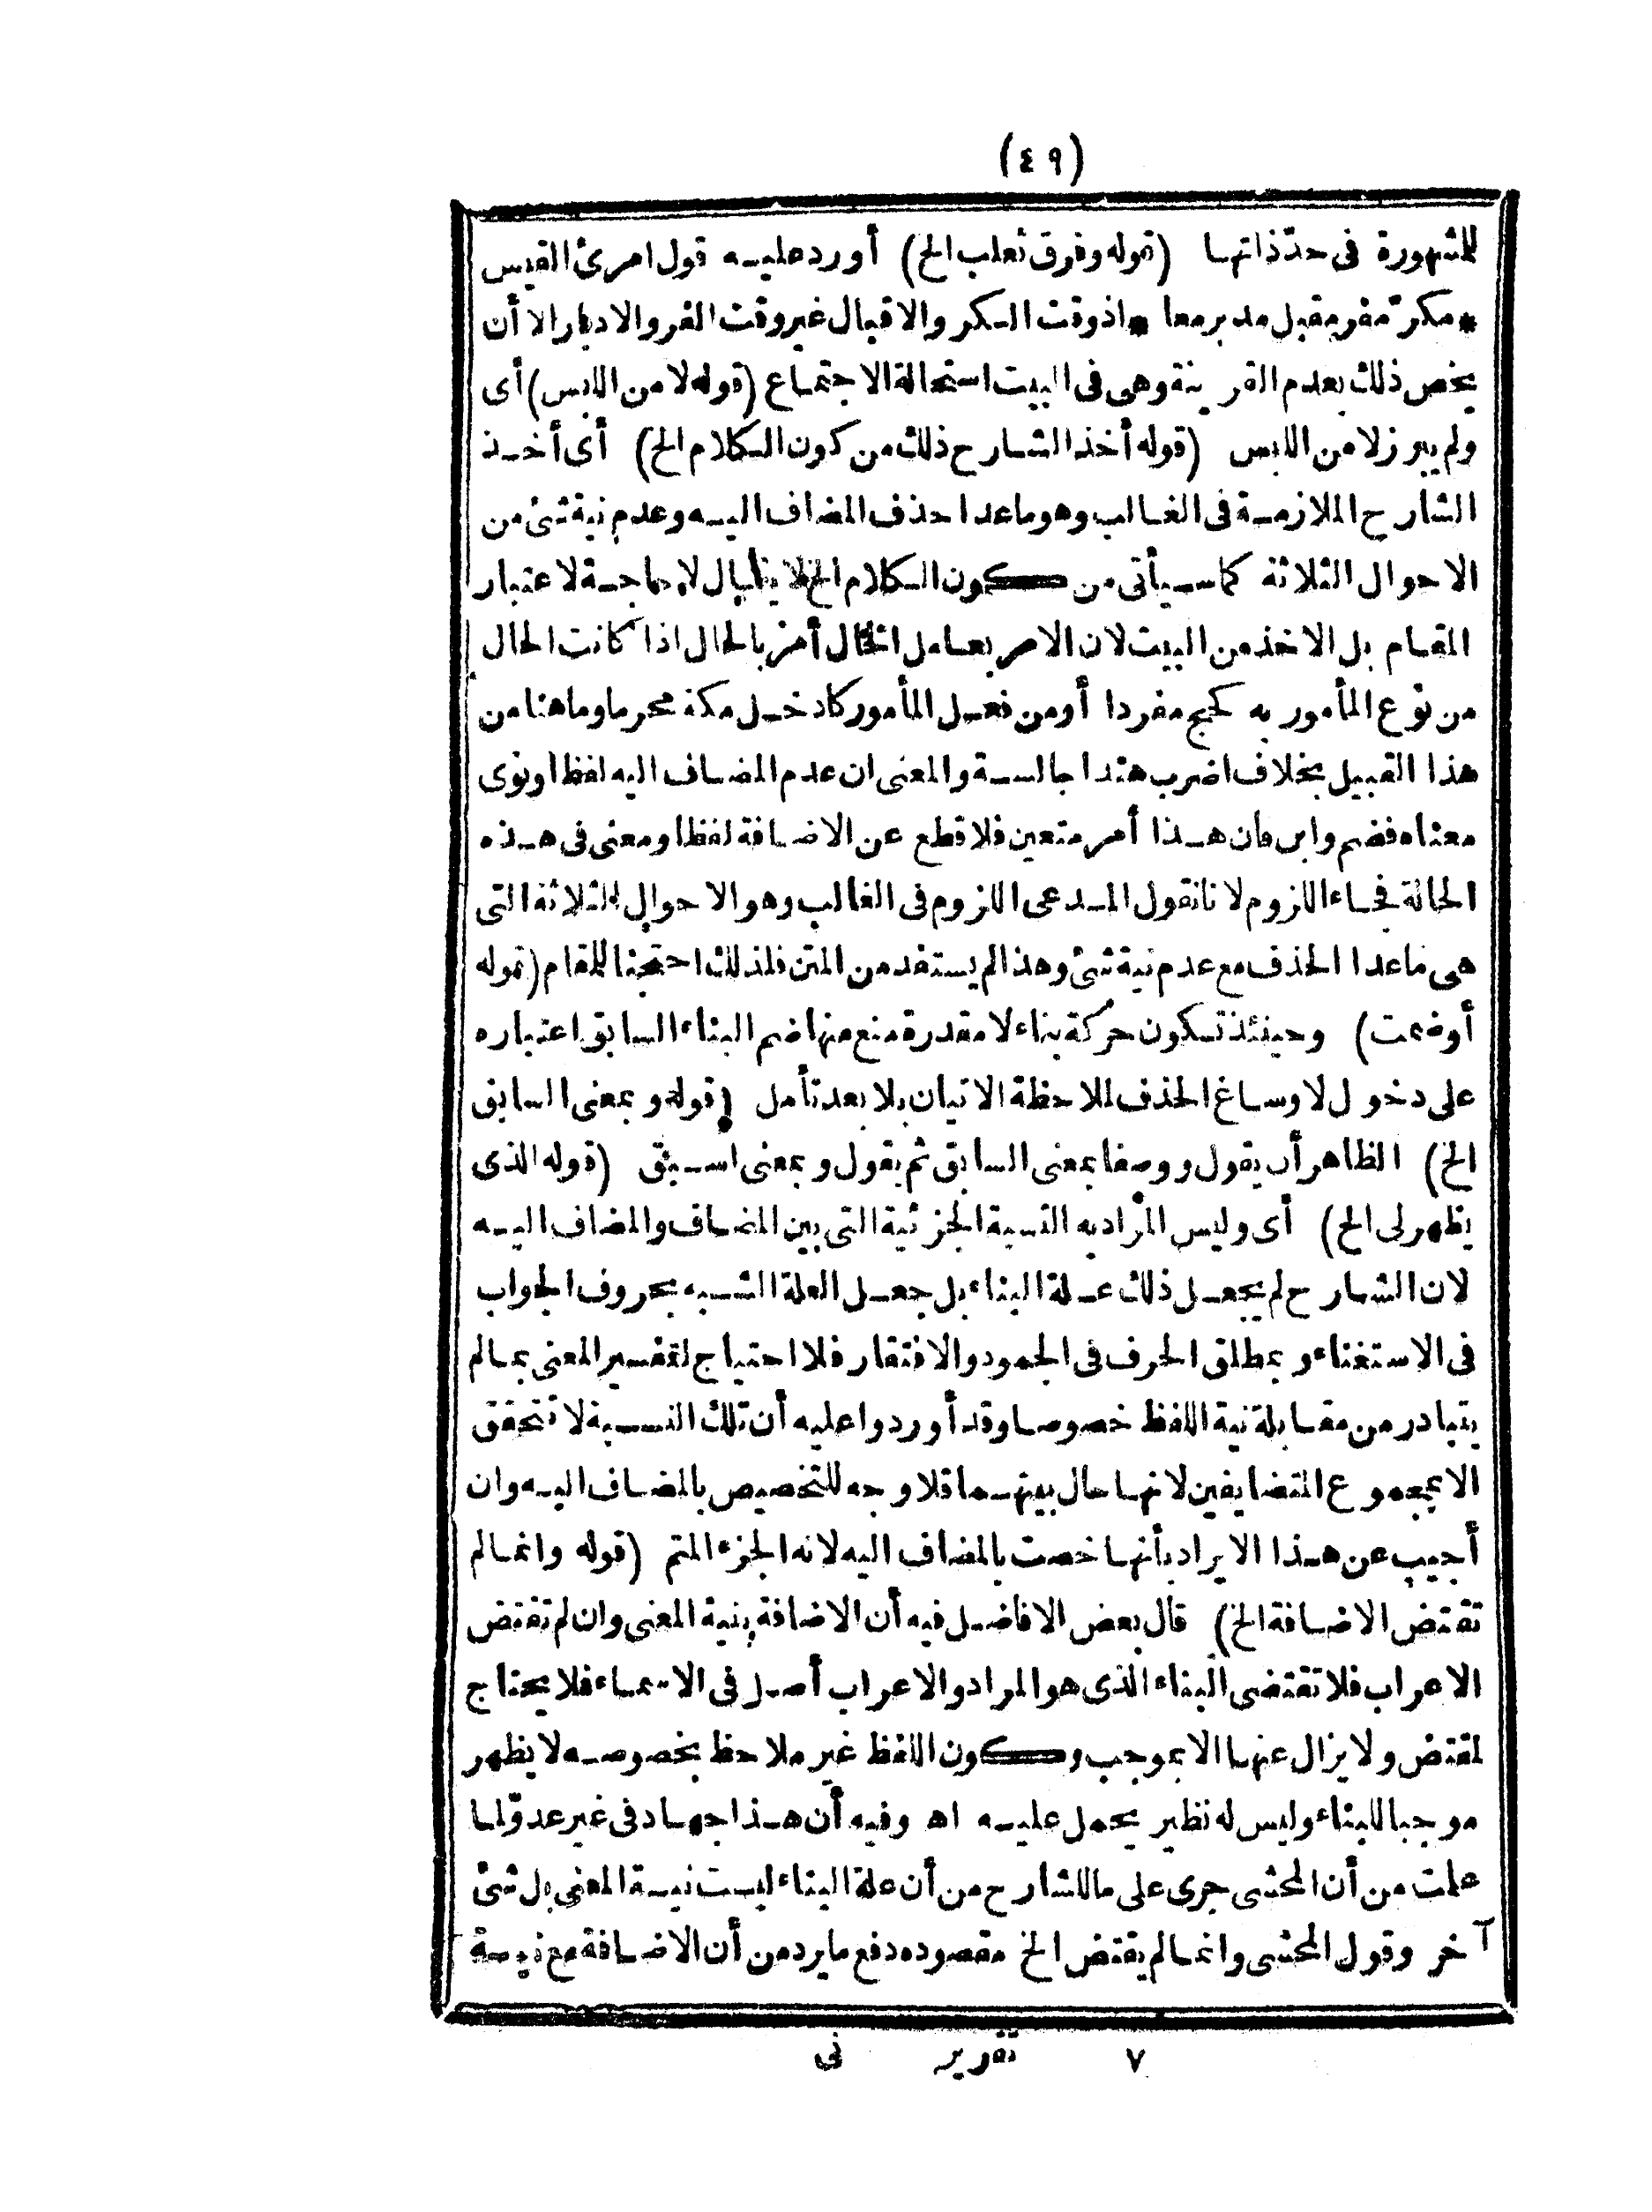 (٤٩)
للشهورة فى حدّذاتها (قوله وفرق ثعلب الخ) أورد عليه قول امرئ القيس
* مكرّ مفر مقبل مدبر معا * اذ وقت الكر والاقبال غير وقت الفر والادبار الا أن
يخص ذلك بعدم القرينة وهى فى البيت استحالة الاجتماع (قوله لا من اللبس) أى
ولم يبرز لا من اللبس (قوله أخذ الشارح ذلك من كون الكلام الخ) أى أخذ
الشارح الملازمة فى الغالب وهو ما عدا حذف المضاف اليه وعدم نية شئ من
الاحوال الثلاثة كما سيأتى من كون الكلام الخ فلا يقال لا حاجة لاعتبار
المقام بل الاخذ من البيت لان الامر بعامل الحال أمر بالحال اذا كانت الحال
من نوع المأمور به كحج مفردا أو من فعل المأمور كادخل مكة محرما وما هنا من
هذا القبيل بخلاف اضرب هندا جالسة والمعنى ان عدم المضاف اليه لفظا ونوى
معناه فضم وابن فان هذا أمر متعين فلا قطع عن الاضافة لفظا ومعنى فى هذه
الحالة فجاء اللزوم لانا نقول المدعى اللزوم فى الغالب وهو الاحوال الثلاثة التى
هى ما عدا الحذف مع عدم نية شئ وهذا لم يستفد من المتن فلذلك احتجنا للمقام (قوله
أوضمت) وحينئذ تكون حركة بناء لا مقدرة منع منها ضم البناء السابق اعتباره
على دخول لا وساغ الحذف لملاحظة الاتيان بلا بعد تأمل (قوله وبمعنى السابق
الخ) الظاهر أن يقول ووصفا بمعنى السابق ثم يقول وبمعنى اسبق (قوله الذى
يظهر لى الخ) أى وليس المراد به النسبة الجزئية التى بين المضاف والمضاف اليه
لان الشارح لم يجعل ذلك علة البناء بل جعل العلة الشبه بحروف الجواب
فى الاستغناء وبمطلق الحرف فى الجمود والافتقار فلا احتياج لتفسير المعنى بما لم
يتبادر من مقابلة نية اللفظ خصوصا وقد أوردوا عليه أن تلك النسبة لا تتحقق
الا بمجموع المتضايفين لانها حال بينهما فلا وجه للتخصيص بالمضاف اليه وان
أجيب عن هذا الايراد بأنها خصت بالمضاف اليه لانه الجزء المتم (قوله وانما لم
تقتض الاضافة الخ) قال بعض الافاضل فيه أن الاضافة بنية المعنى وان لم تقتض
الاعراب فلا تقتضى البناء الذى هو المراد والاعراب أصل فى الاسماء فلا يحتاج
لمقتض ولا يزال عنها الا بموجب وكون اللفظ غير ملاحظ بخصوصه لا يظهر
موجبا للبناء وليس له نظير يحمل عليه اه وفيه أن هذا جهاد فى غير عدوّ لما
علمت من أن المحشى جرى على ما للشارح من أن علة البناء ليست نية المعنى بل شئ
آخر وقول المحشى وانما لم يقتض الخ مقصوده دفع ما يرد من أن الاضافة مع نية
٧ تقرير نى